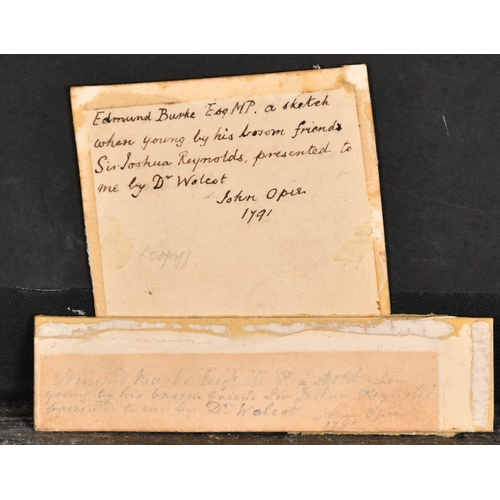 Edmund Burke Esq MP. a sketch
when young by his bosom friend
Sir Joshua Reynolds, presented to
me by Dr Wolcot
John Opie.
1791
(copy)
Edmund Burke Esqr M.P. a
young by his bosom friend Sir Joshua
presented to me by Dr Wolcot
Opie
1791